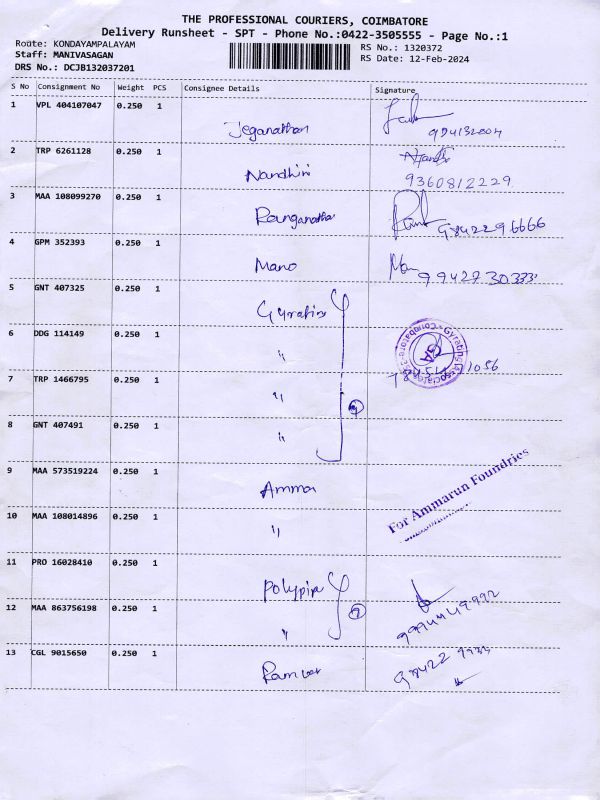 THE PROFESSIONAL COURIERS, COIMBATORE
Delivery Runsheet - SPT - Phone No.:0422-3505555 - Page No.:1
Route: KONDAYAMPALAYAM
Staff: MANIVASAGAN
DRS No.: DCJB132037201
RS No.: 1320372
RS Date: 12-Feb-2024
S No Consignment No Weight PCS Consignee Details Signature
1 VPL 404107047 0.250 1
Jeganathan
2 TRP 6261128 0.250 1
Nandhini
9360812229
3 MAA 108099270 0.250 1
Ranganathan
9842296666
4 GPM 352393 0.250 1
Mano
9942730333
5 GNT 407325 0.250 1
6 DDG 114149 0.250 1
"
7 TRP 1466795 0.250 1
"
8 GNT 407491 0.250 1
"
9 MAA 573519224 0.250 1
Amma
For Ammarun Foundries
10 MAA 108014896 0.250 1
"
11 PRO 16028410 0.250 1
Polypipe
12 MAA 863756198 0.250 1
"
13 CGL 9015650 0.250 1